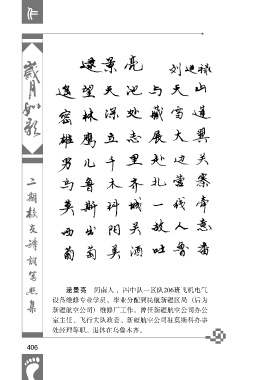 作
岁月如歌
二期校友诗词写照集
遥望天池与天山
密林深处藏雪莲
雄鹰立志展大翼
男儿千里赴边关
乌鲁木齐北营寨
莫斯科城一代帝
西出阳关故人意
葡萄美酒吐鲁番
河南人，四中队一区队206班飞机电气
设备维修专业学员。毕业分配到民航新疆区局（后为
新疆航空公司）维修厂工作。曾任新疆航空公司办公
室主任、飞行大队政委、新疆航空公司驻莫斯科办事
处经理等职。退休在乌鲁木齐。
406